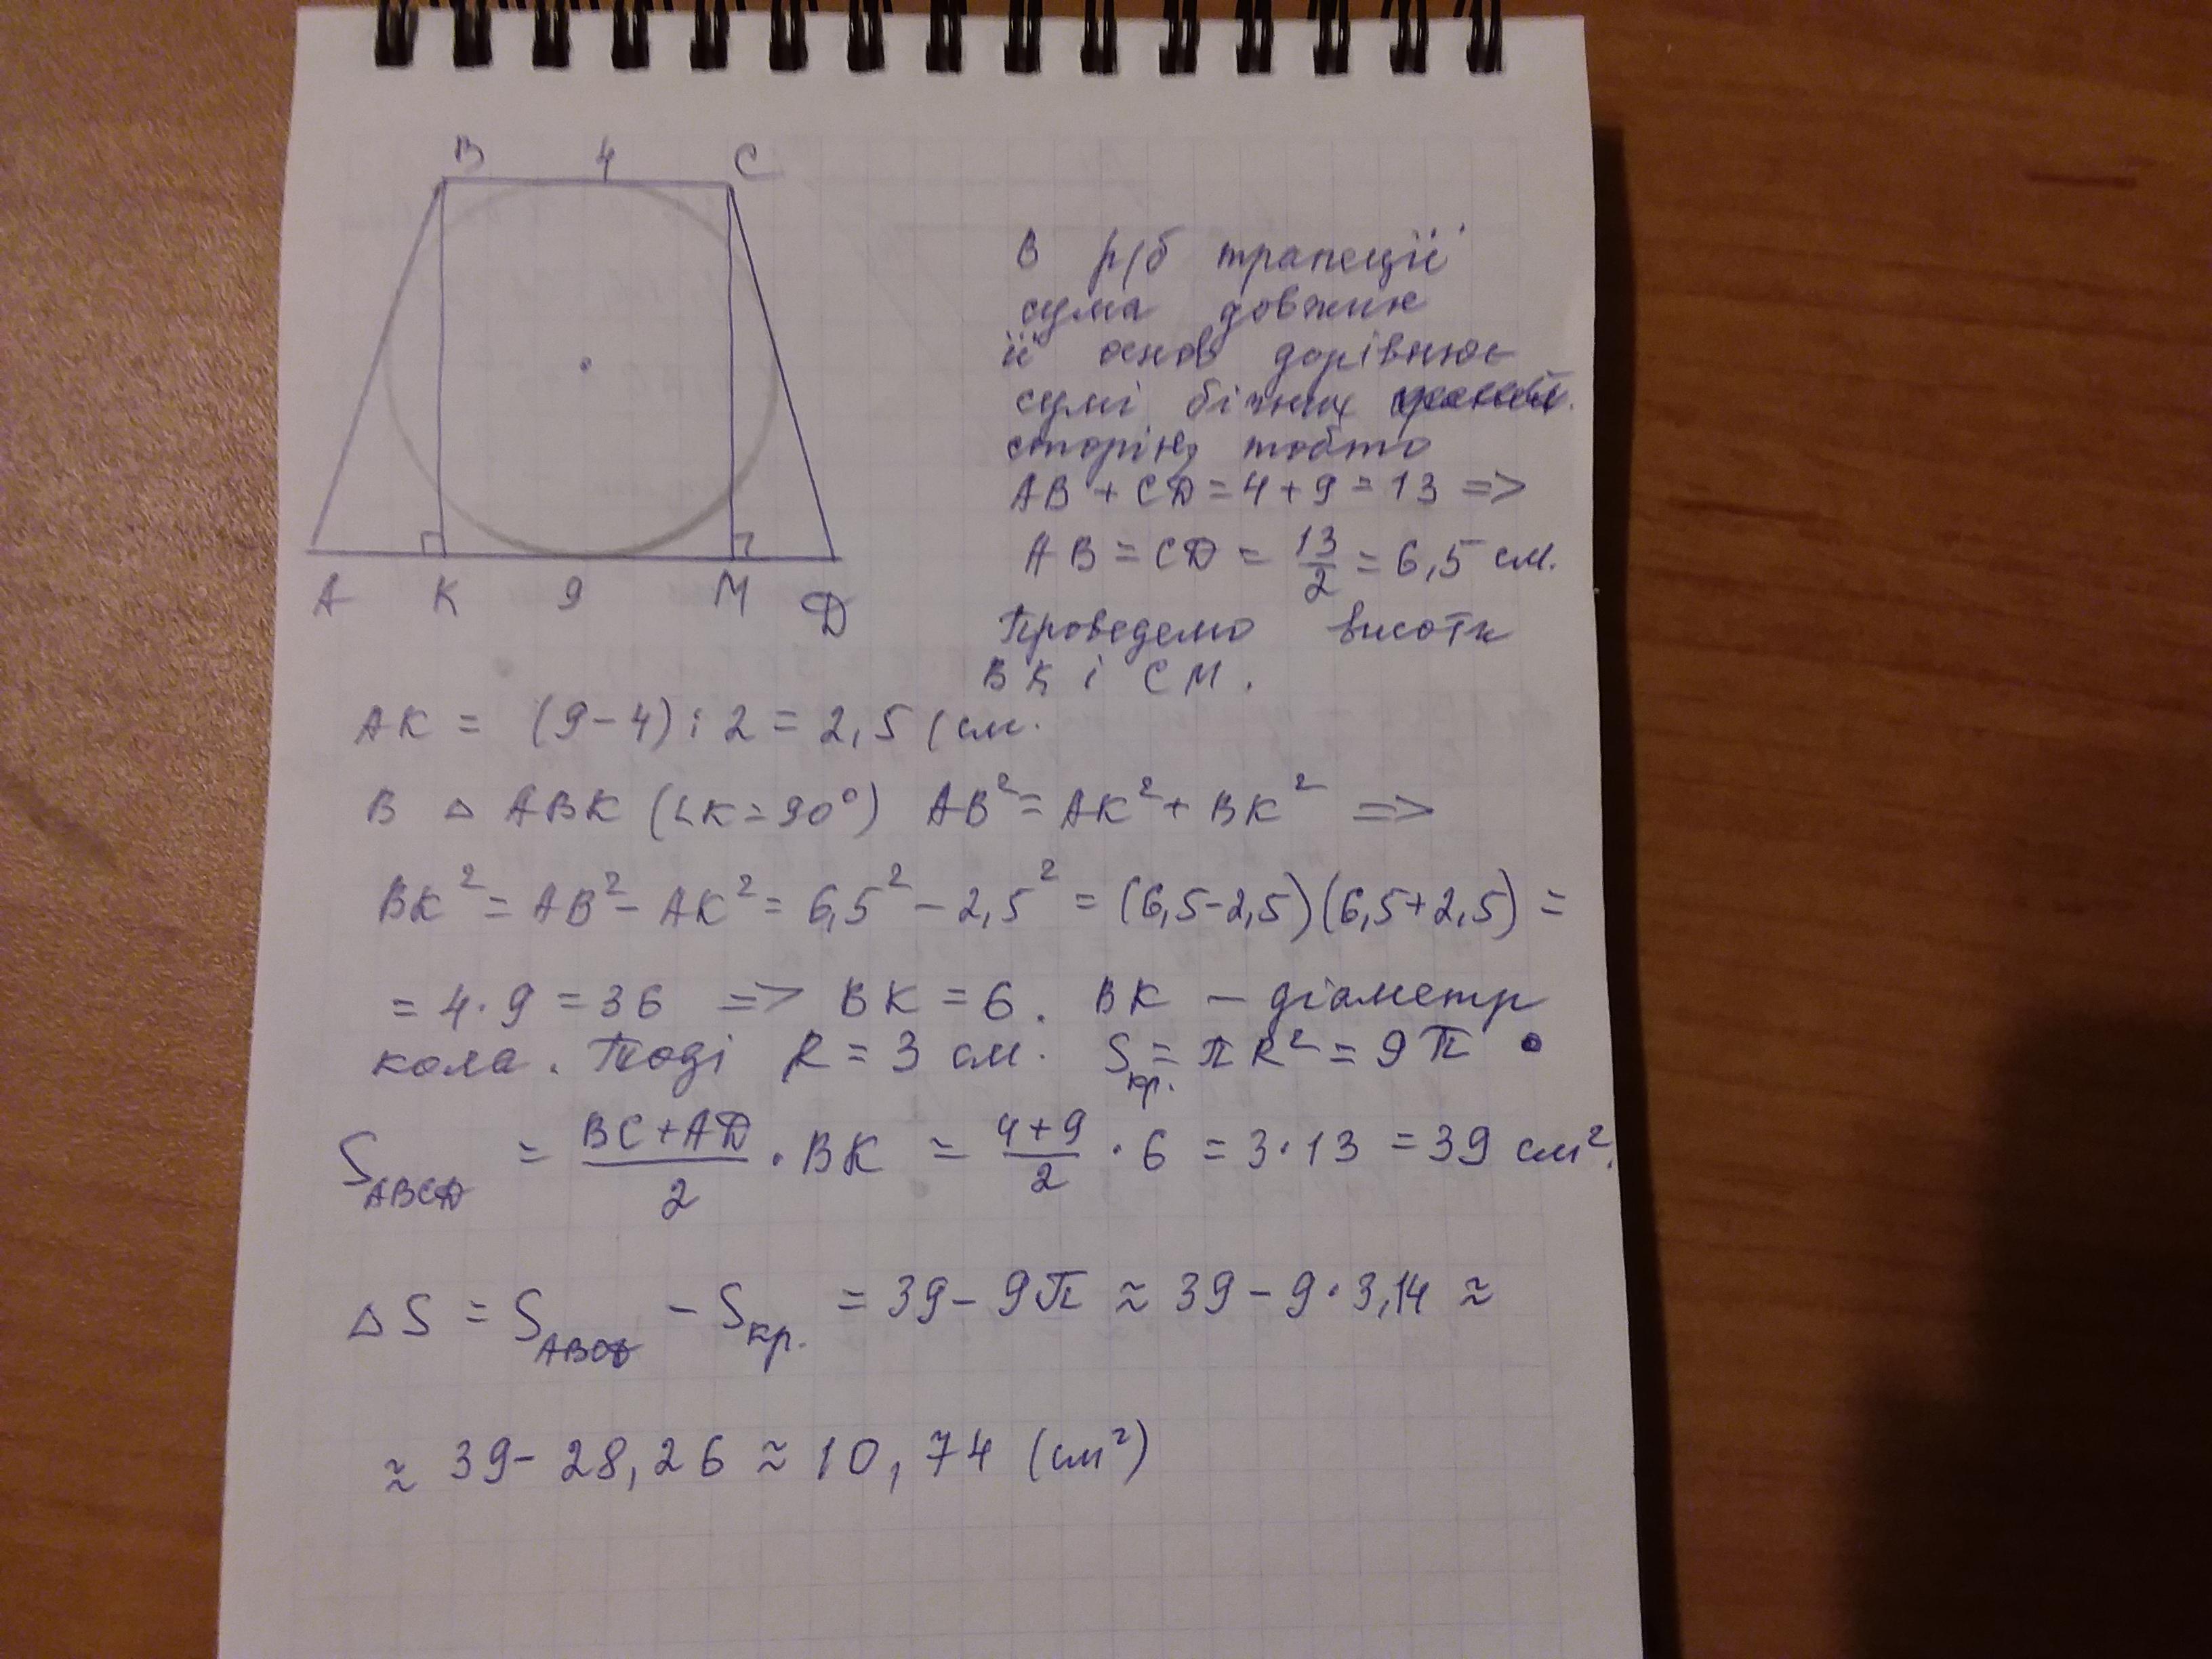 B 4 C
A K 9 M D
В р/б трапеції
сума довжин
її основ дорівнює
сумі бічних
сторін, тобто
AB + CD = 4 + 9 = 13 =>
AB = CD = 13/2 = 6,5 см.
Проведемо висоти
BK і CM.
AK = (9 - 4) : 2 = 2,5 (см.
В △ ABK (∠K = 90°) AB² = AK² + BK² =>
BK² = AB² - AK² = 6,5² - 2,5² = (6,5-2,5)(6,5+2,5) =
= 4·9 = 36 => BK = 6. BK - діаметр
кола. Тоді R = 3 см. Sкр. = πR² = 9π
S_ABCD = (BC+AD)/2 · BK = (4+9)/2 · 6 = 3·13 = 39 см².
△S = S_ABCD - Sкр. = 39 - 9π ≈ 39 - 9·3,14 ≈
≈ 39 - 28,26 ≈ 10,74 (см²)